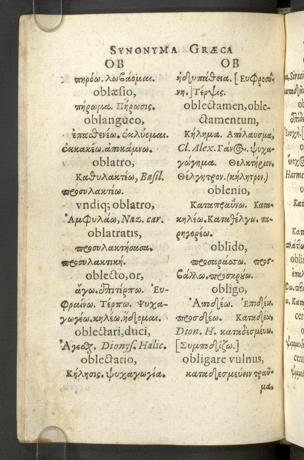 SYNONYMA GRÆCA
OB
πηρόω. λωβάομαι.
oblæsio,
πήρωμα. Πήρωσις.
oblangueo,
ἐκκακέω. ἀποκάμνω.
oblatro,
Καθυλακτέω, Basil.
προσυλακτέω.
vndiq; oblatro,
Ἀμφυλάω, Naz. car.
oblatratis,
προσυλακτήσασα.
προσυλακτική.
oblecto, or,
ἄγω. ἐπιτέρπω. Εὐ-
φραίνω. Τέρπω. Ψυχα-
γωγέω. κηλέω. ἥδομαι.
oblectari, duci,
Dionys. Halic.
oblectatio,
Κήλησις. ψυχαγωγία.
OB
ἡδυπάθεια. [Εὐφροσύ-
νη.] Τέρψις.
oblectamen, oble-
ctamentum,
Κήλημα. Ἀπόλαυσμα,
Cl. Alex. Γάνος. ψυχα-
γώγημα. Θελκτήριον.
Θέλγητρον. (κήλητρον.)
oblenio,
Καταπραΰνω. Κατα-
κηλέω. Καταθέλγω. πα-
ρηγορέω.
oblido,
προσαράττω. προσ-
βάλλω. προσκρούω.
obligo,
Ἀποδέω. Ἐπιδέω.
προσδέω. Καταδέω,
Dion. H. καταδεσμέω.
[Συμποδίζω.]
obligare vulnus,
καταδεσμεύειν τραῦ-
μα.